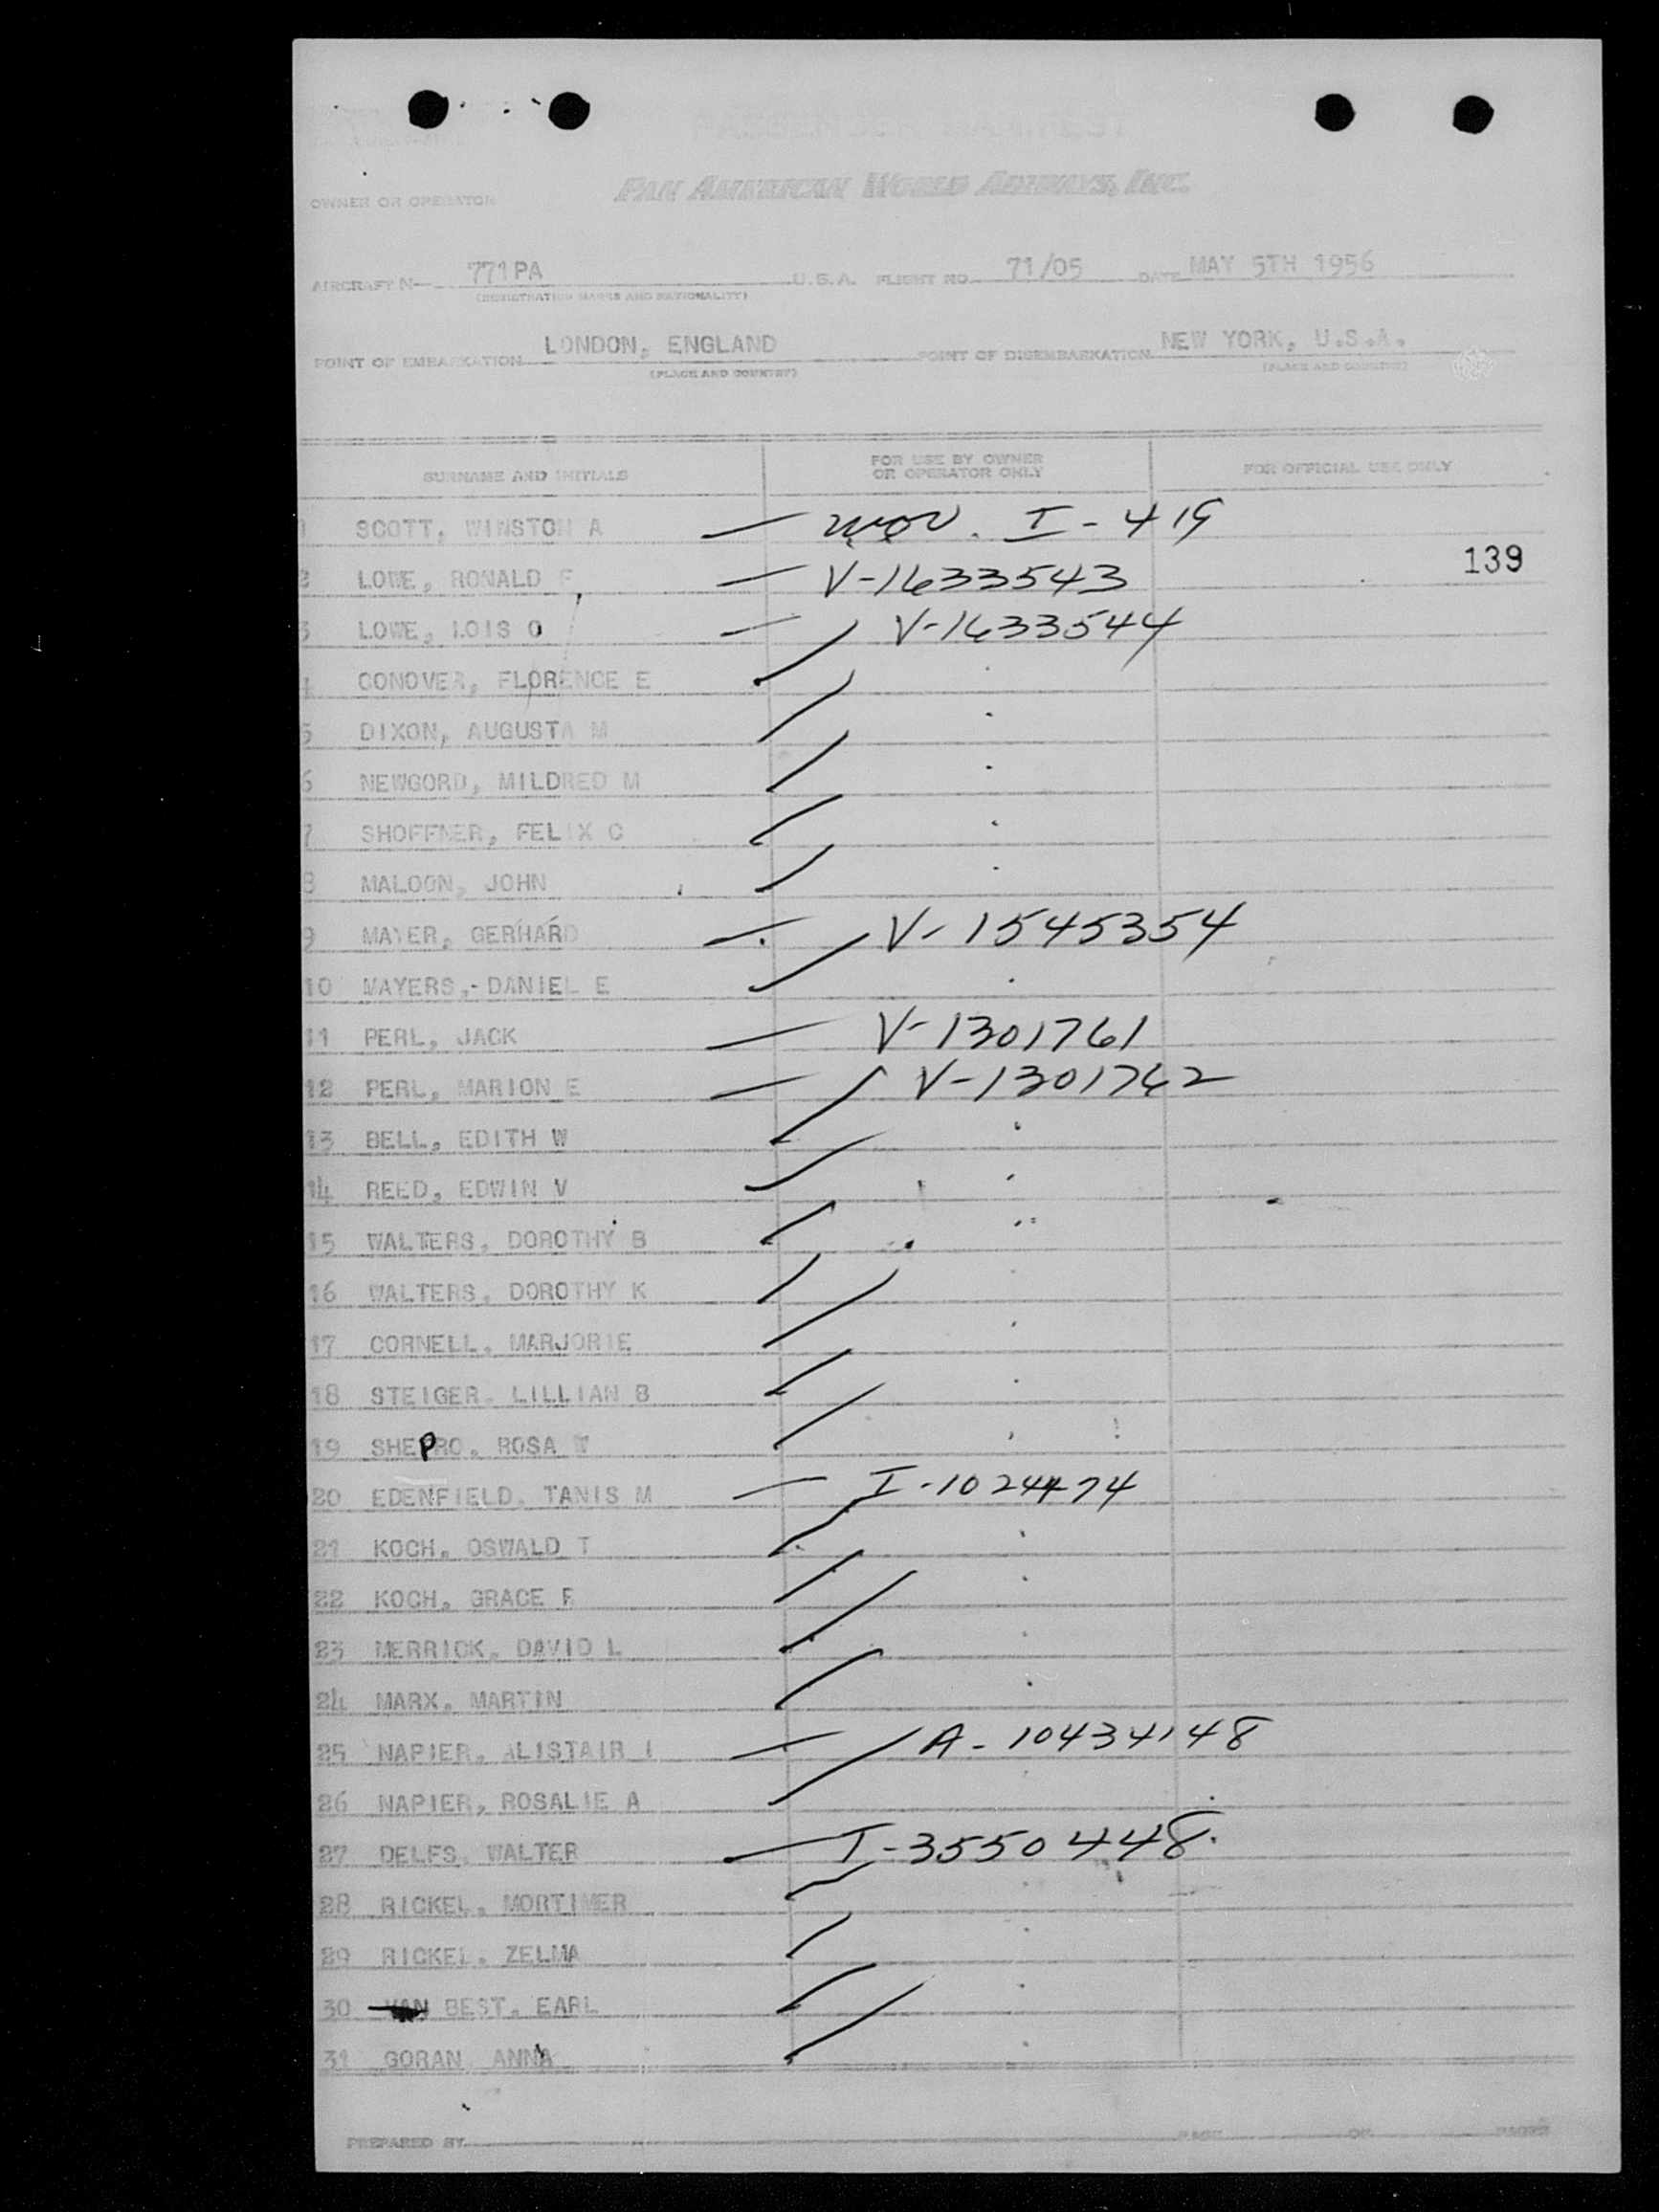 PASSENGER MANIFEST
OWNER OR OPERATOR PAN AMERICAN WORLD AIRWAYS, INC.
AIRCRAFT N- 771PA U.S.A. FLIGHT NO. 71/05 DATE MAY 5TH 1956
(REGISTRATION MARKS AND NATIONALITY)
POINT OF EMBARKATION LONDON, ENGLAND POINT OF DISEMBARKATION NEW YORK, U.S.A.
(PLACE AND COUNTRY) (PLACE AND COUNTRY)
SURNAME AND INITIALS FOR USE BY OWNER OR OPERATOR ONLY FOR OFFICIAL USE ONLY
1 SCOTT, WINSTON A I-419
139
2 LOWE, RONALD F V-1633543
3 LOWE, LOIS O V-1633544
4 CONOVER, FLORENCE E
5 DIXON, AUGUSTA M
6 NEWGORD, MILDRED M
7 SHOFFNER, FELIX C
8 MALOON, JOHN
9 MAYER, GERHARD V-1545354
10 MAYERS,- DANIEL E
11 PERL, JACK V-1301761
12 PERL, MARION E V-1301762
13 BELL, EDITH W
14 REED, EDWIN V
15 WALTERS, DOROTHY B
16 WALTERS, DOROTHY K
17 CORNELL, MARJORIE
18 STEIGER, LILLIAN B
19 SHEPRO, ROSA W
20 EDENFIELD, TANIS M I-1024474
21 KOCH, OSWALD T
22 KOCH, GRACE F
23 MERRICK, DAVID L
24 MARX, MARTIN
25 NAPIER, ALISTAIR I A-10434148
26 NAPIER, ROSALIE A
27 DELFS, WALTER I-3550448
28 RICKEL, MORTIMER
29 RICKEL, ZELMA
30 VAN BEST, EARL
31 GORAN ANNA
PREPARED BY PAGE OF PAGES